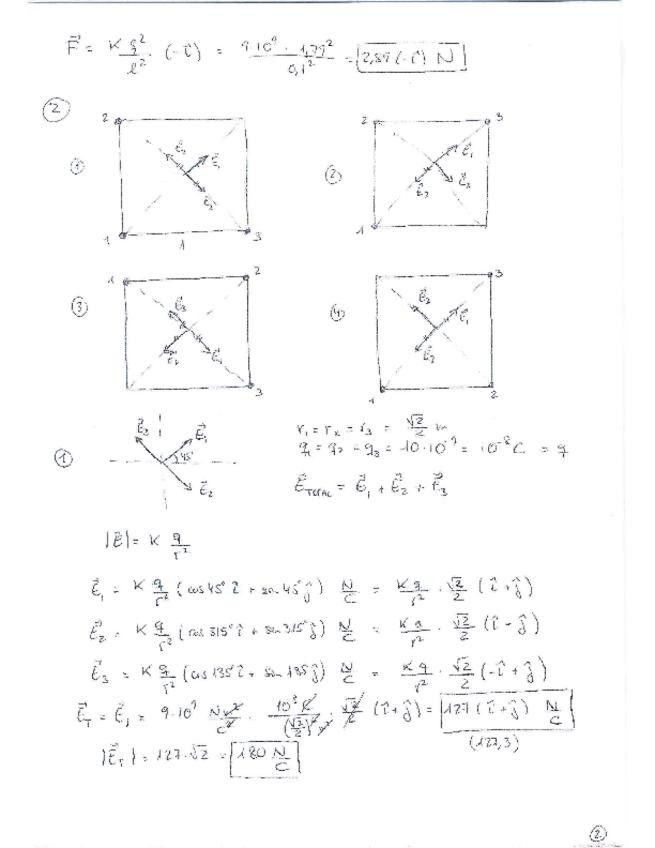 F⃗ = K q²/l² · (-î) = 9·10⁹ · 1,79²/0,1² = 2,89 (-î) N
②
① 2 E⃗₃ E⃗₁ E⃗₂ 1 1 3
② 2 3 E⃗₁ E⃗₂ E⃗₃ 1
③ 1 2 E⃗₃ E⃗₂ E⃗₁ 3
④ 3 E⃗₂ E⃗₁ E⃗₃ 1 2
① E⃗₃ E⃗₁ 45° E⃗₂
r₁ = r₂ = r₃ = √2/2 m
q₁ = q₂ = q₃ = 10·10⁻⁹ = 10⁻⁸ C = q
E⃗TOTAL = E⃗₁ + E⃗₂ + E⃗₃
|E⃗| = K q/r²
E⃗₁ = K q/r² (cos 45° î + sin 45° ĵ) N/C = Kq/r² · √2/2 (î + ĵ)
E⃗₂ = K q/r² (cos 315° î + sin 315° ĵ) N/C = Kq/r² · √2/2 (î - ĵ)
E⃗₃ = K q/r² (cos 135° î + sin 135° ĵ) N/C = Kq/r² · √2/2 (-î + ĵ)
E⃗T = E⃗₁ = 9·10⁹ Nm²/C² · 10⁻⁸ C/(√2/2)² m² · √2/2 (î + ĵ) = 127 (î + ĵ) N/C
(127,3)
|E⃗T| = 127·√2 = 180 N/C
②